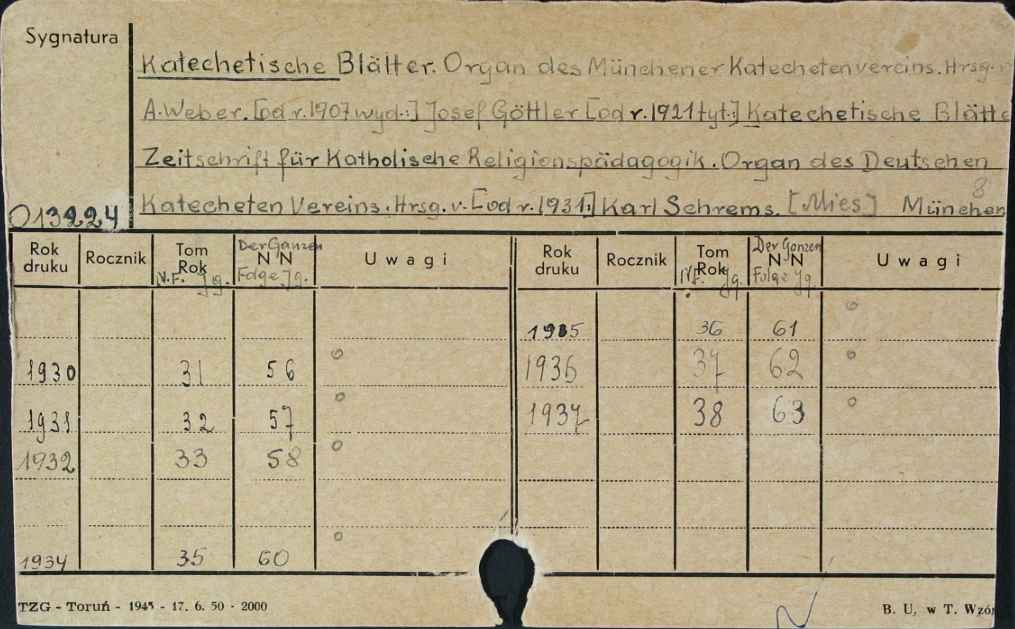 Sygnatura
Katechetische Blätter. Organ des Münchener Katechetenvereins. Hrsg. v.
A. Weber. [od r. 1907 wyd.:] Josef Göttler [od r. 1921 tyt.:] Katechetische Blätte
Zeitschrift für Katholische Religionspädagogik. Organ des Deutschen
8
013224 Katecheten Vereins. Hrsg. v. [od r. 1931:] Karl Schrems. [Mies] München
Rok druku Rocznik Tom Rok N.F. Jg. Der Ganzen N N Folge Jg. Uwagi Rok druku Rocznik Tom Rok N.F. Jg. Der Ganzen N N Folge Jg. Uwagi
1935 36 61
1930 31 56 1936 37 62
1931 32 57 1937 38 63
1932 33 58
1934 35 60
TZG - Toruń - 1945 - 17. 6. 50 - 2000 B. U. w T. Wzór